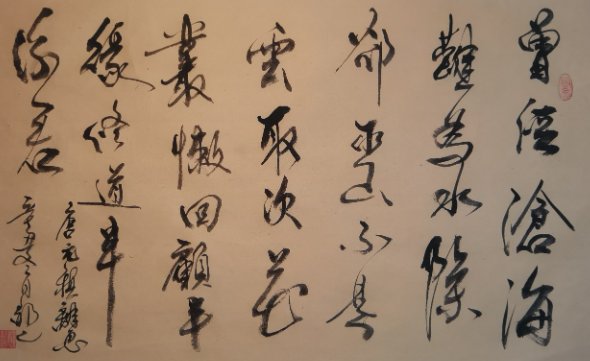 曾經滄海
難為水除
卻巫山不是
雲取次花
叢懶回顧半
緣修道半
緣君
唐元稹離思
辛丑